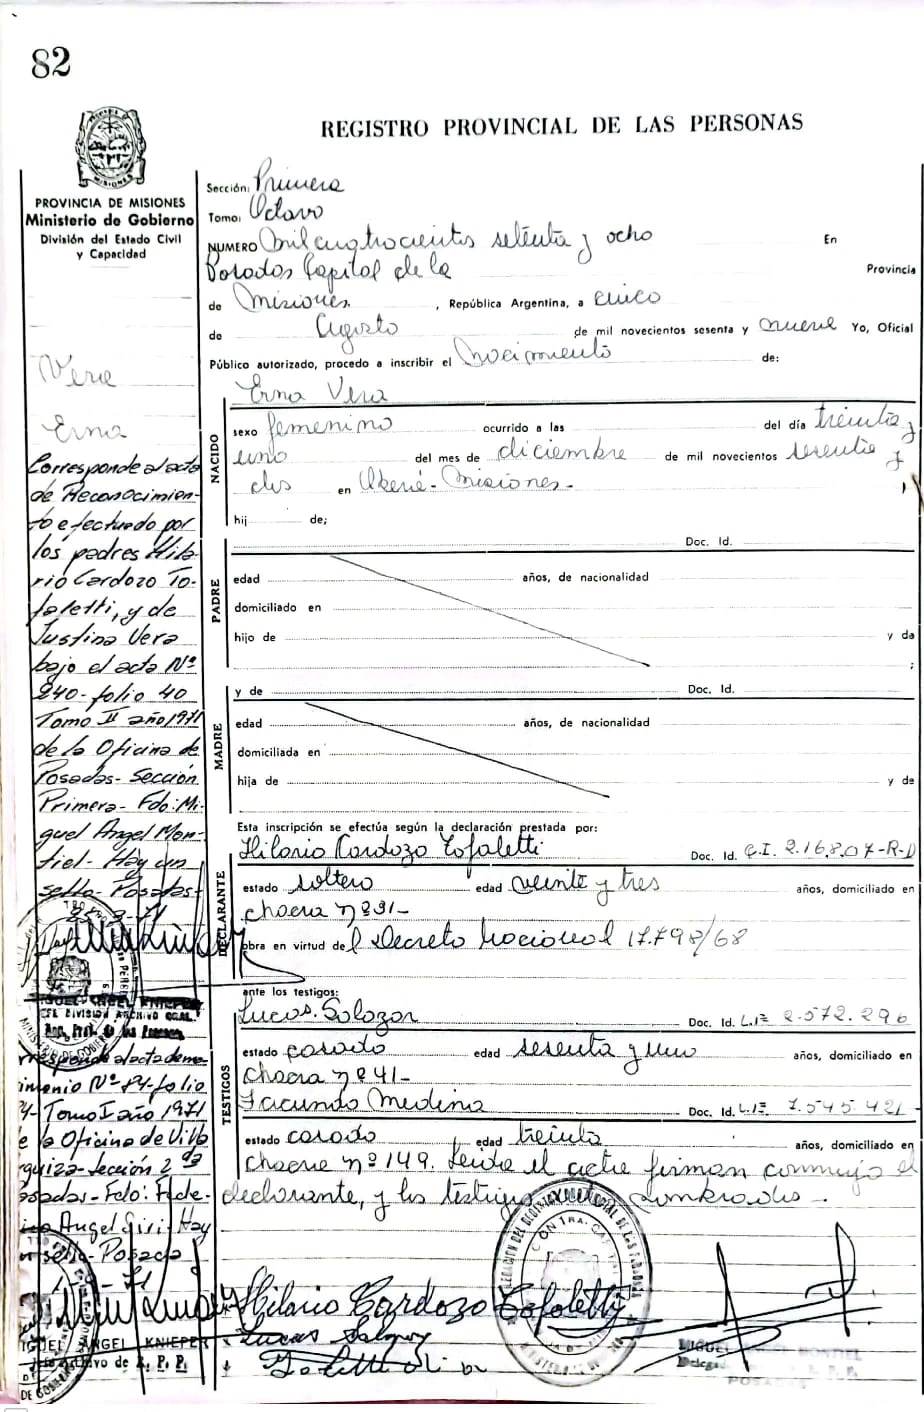 82
REGISTRO PROVINCIAL DE LAS PERSONAS
MISIONES
PROVINCIA DE MISIONES
Ministerio de Gobierno
División del Estado Civil
y Capacidad
Sección: Primera
Tomo: Octavo
NUMERO Mil cuatrocientos setenta y ocho En
Posadas Capital de la Provincia
de Misiones, República Argentina, a cinco
de Agosto de mil novecientos sesenta y nueve Yo, Oficial
Público autorizado, procedo a inscribir el Nacimiento de:
Vera
Erna
Corresponde al acta
de Reconocimien-
to efectuado por
los padres Hila-
rio Cardozo To-
faletti, y de
Justina Vera
bajo el acta Nº
240-folio 40
Tomo II año 1971
de la Oficina de
Posadas-Sección
Primera-Fdo: Mi-
guel Angel Mon-
tiel-Hay un
sello-Posadas-
MIGUEL ANGEL KNIEPER
JEFE DIVISION ARCHIVO GRAL.
Reg. Prov. de las Personas
rresponde al acta de ma-
imonio Nº 84-folio
Tomo I año 1971
e la Oficina de Villa
rquiza-Sección 2da
osadas-Fdo: Fede-
Angel Giri-Hay
sello-Posada
71
IGUEL ANGEL KNIEPER
Archivo de R. P. P.
NACIDO
Erna Vera
sexo femenino ocurrido a las del día treinta y
uno del mes de diciembre de mil novecientos sesenta y
dos en Oberá-Misiones-
hij de;
PADRE
Doc. Id.
edad años, de nacionalidad
domiciliado en
hijo de y da
;
MADRE
y de Doc. Id.
edad años, de nacionalidad
domiciliada en
hija de y de
DECLARANTE
Esta inscripción se efectúa según la declaración prestada por:
Hilario Cardozo Tofaletti Doc. Id. C.I. 216.807-R-D
estado soltero edad veinte y tres años, domiciliado en
chacra nº 31-
obra en virtud del Decreto Nacional 17.798/68
TESTIGOS
ante los testigos:
Lucas Salazar Doc. Id. L.E. 2.572.296
estado casado edad sesenta y uno años, domiciliado en
chacra nº 41-
Facundo Medina Doc. Id. L.E. 7.545.421-
estado casado edad treinta años, domiciliado en
Chacra nº 149. Leida el acta firman conmigo el
declarante, y los testigos nombrados-
Hilario Cardozo Tofoletti
Lucas Salazar
MIGUEL
Delega
POSADAS